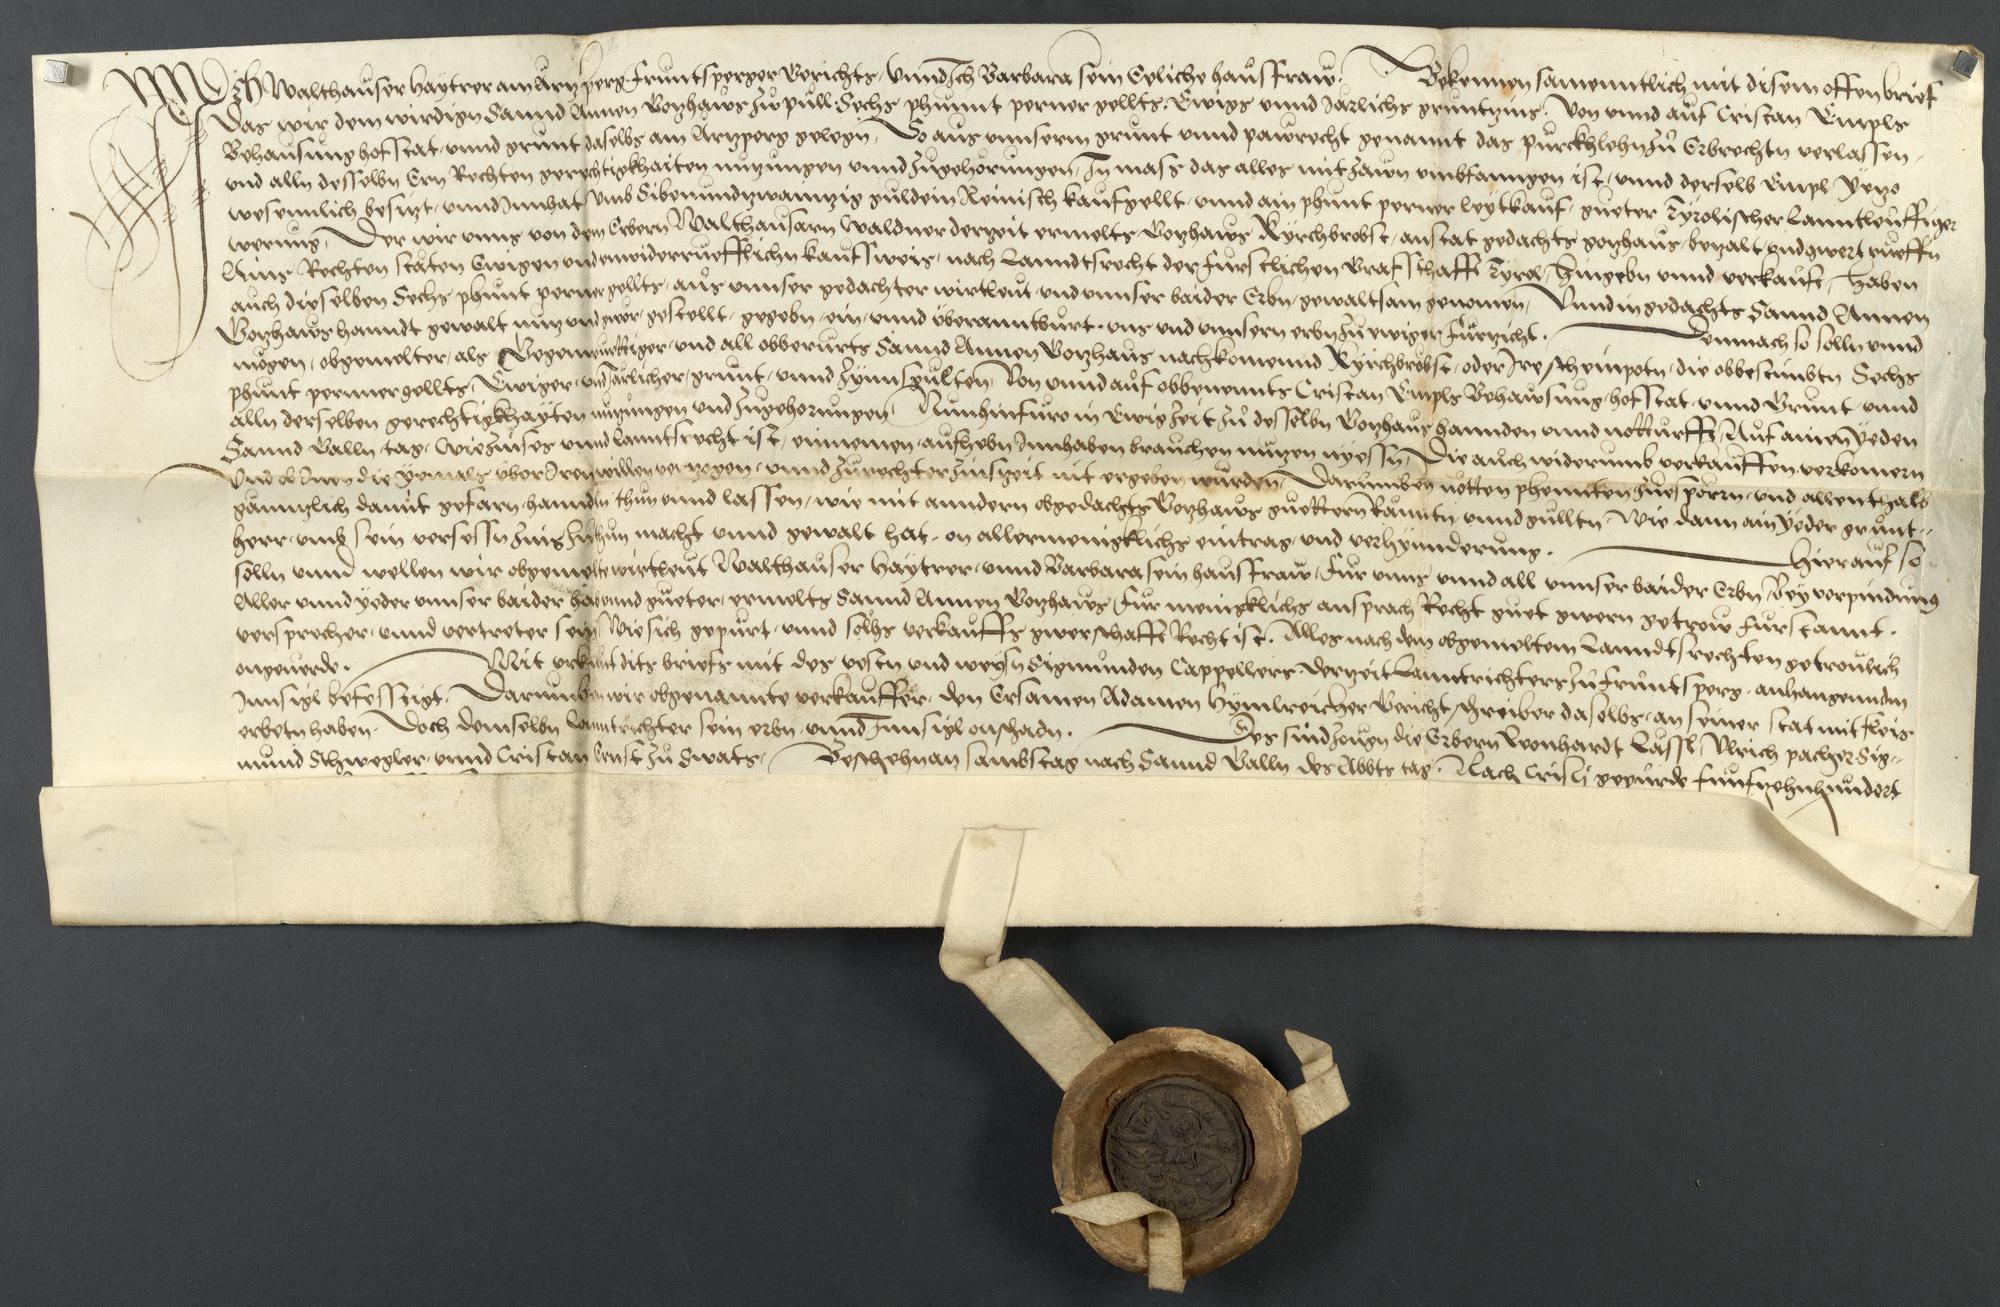 Ich Walthauser Haytrer am Arntzperg Fruntsperger Gerichts, Unnd Ich Barbara sein Eeliche hausfraw. Bekennen samenntlich mit disem offen brief
Das wir dem wirdign Sannd Annen Gotzhaws zw pull Sechs phunnt perner gellts Ewigs unnd Jarlichs gruntzins. Von unnd auf Cristan Empls
Behausung hofstat, unnd grunt daselbs am Artzperg gelegn, So aus unnserm grunt unnd pawrecht genannt das purckhlehn zu Erbrechtn verlassen,
und alln desselbn Ern Rechten gerechtigkhaiten nutzungen unnd zugehorungen, In mass das alles mit zawn umbfanngen ist, unnd derselb Empl Yetzo
wesennlich besitzt, unnd Innhat, umb Sibenundzwainzig guldein Reinisch kaufgellt, unnd ain phunt perner leytkauf, gueter Tyrolischer Lanntleuffiger
werung, Der wir unns von dem Erbern Walthausarn Waldner derzeit ermelts Gotzhaws Kyrchbrobst, anstat gedachts gotzhaus, bezalt und gwert rueffn
Ains Rechten stäten Ewigen und unwiderruefflichn kaufsweis, nach Lanndtsrecht der furstlichen Grafschafft Tyrol, hingebn unnd verkauft, Haben
auch dieselben Sechs phunt perner gellts, aus unnser gedachter wirtleut, und unnser baider Erbn, gewaltsam genomen, Unnd in gedachts Sannd Annen
Gotzhaws hanndt gewalt nutz und gwer, gestellt, gegebn, ein, unnd uberanntburt, uns und unnsern erbn zu ewiger Furzicht. Demnach so solln unnd
mogen, obgemelter, als Gegenwurttiger, und all obberurts Sannd Annen Gotzhaus nachkomennd Kyrchbröbst, oder Ire scheinpotn, die obbestimbtn Sechs
phunt perner gellts, Ewiger, und Jarlicher, grunt, unnd Zynnsgulten, Von unnd auf obbenennts Cristan Empls Behawsung, hofstat, unnd Grunt, unnd
alln derselben gerechtigkhayten nutzungen und zugehorungen, Nunhinfuro in Ewig Zeit zu desselbn Gotzhaus hannden unnd notturfft, Auf ainen Yeden
Sannd Galln, tag, wie zinses unnd lanntsrecht ist, einnemen, aufhebn Innhaben brauchen nutzen nyessn, Die auch widerumb verkauffen verkomern
Und ob Inen die Yemals uber Iren willen verzogen, unnd zu rechter zinszeit nit ergeben wurden, Darumben notten phennten, und allennthalb
gänntzlich damit gefarn, hanndln thun unnd lassen, wie mit anndern obgedachts Gotzhaws guettern Räntn, unnd gulltn, Wie dann ain Yeder grunt
herr, umb sein versessn Zins Zuthun macht unnd gewalt hat, on allermenigklichs eintrag, und verhynnderung. Hierauf so
solln unnd wellen wir obgemelte wirtleut Walthauser Haytrer, unnd Barbara sein hausfraw, Fur unns unnd all unnser baider Erbn, Bey verpindung
Aller unnd yeder unnser baider hab unnd gueter, ermelts Sannd Annen Gotzhaws, Fur menigklichs ansprach Recht guet gwern getrew furstannt,
versprecher, unnd vertreter sein, Wie sich gepurt, unnd solhs verkauffs gwerschafft Recht ist. Alles nach dem obgemelten Lanndtsrechten getreulich
ongeuerde. Mit urkunt dits briefs mit des vestn und weysn Sigmunden Cappellers derzeit Lanntrichters zu Fruntsperg, anhangenndm
Innsigl befesstigt. Darumben wir obgenannte verkauffer, den Ersamen Adamen Hymlreicher Gericht schreiber daselbs, an seiner stat mit fleis
erbetn haben. Doch demselbn Lanntrichter sein erbn, unnd Innsigl on schadn. Des sind zeugen die Erbern Leonhardt Lässl, Ulrich pacher Sig-
mund Schwegler, unnd Cristan Ernst zu Swats, Beschehn an sambstag nach Sannd Galln des Abbts tag. Nach Cristi gepurde funfzehnhundert